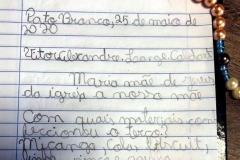 Pato Branco, 25 de maio de
2020
Vitor Alexandre
Maria mãe de Jesus
da igreja a nossa mãe
Com quais materiais con
feccionou o terço?
Miçanga, cola, biscuit,